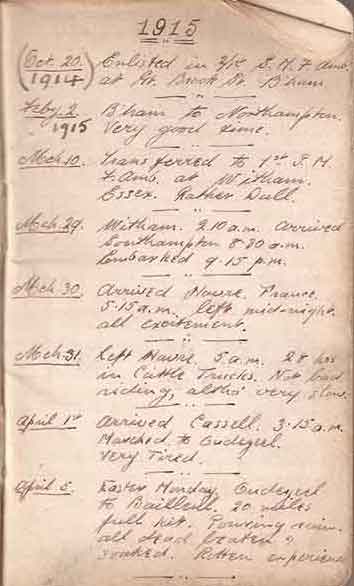 1915
(Oct. 20. Enlisted in 2/1st S.M.F. Amb.
1914) at Gt. Brook St. B'ham
Feby. 2. B'ham to Northampton.
1915 Very good time.
Mch. 10. Transferred to 1st S.M.
F. Amb. at Witham.
Essex. Rather Dull.
Mch. 29. Witham. 2.10 a.m. arrived
Southampton 8.30 a.m.
Embarked 9.15 p.m.
Mch. 30. Arrived Havre. France.
5.15 a.m. left mid-night.
all excitement.
Mch. 31. Left Havre. 5 a.m. 28 hrs
in Cattle Trucks. Not bad
riding, altho' very slow.
April 1st Arrived Cassell. 3.15 a.m.
Marched to
Very Tired.
April 5. Easter Monday.
to Bailleul. 20 miles
full kit. Pouring rain.
all dead beaten &
soaked. Rotten experience